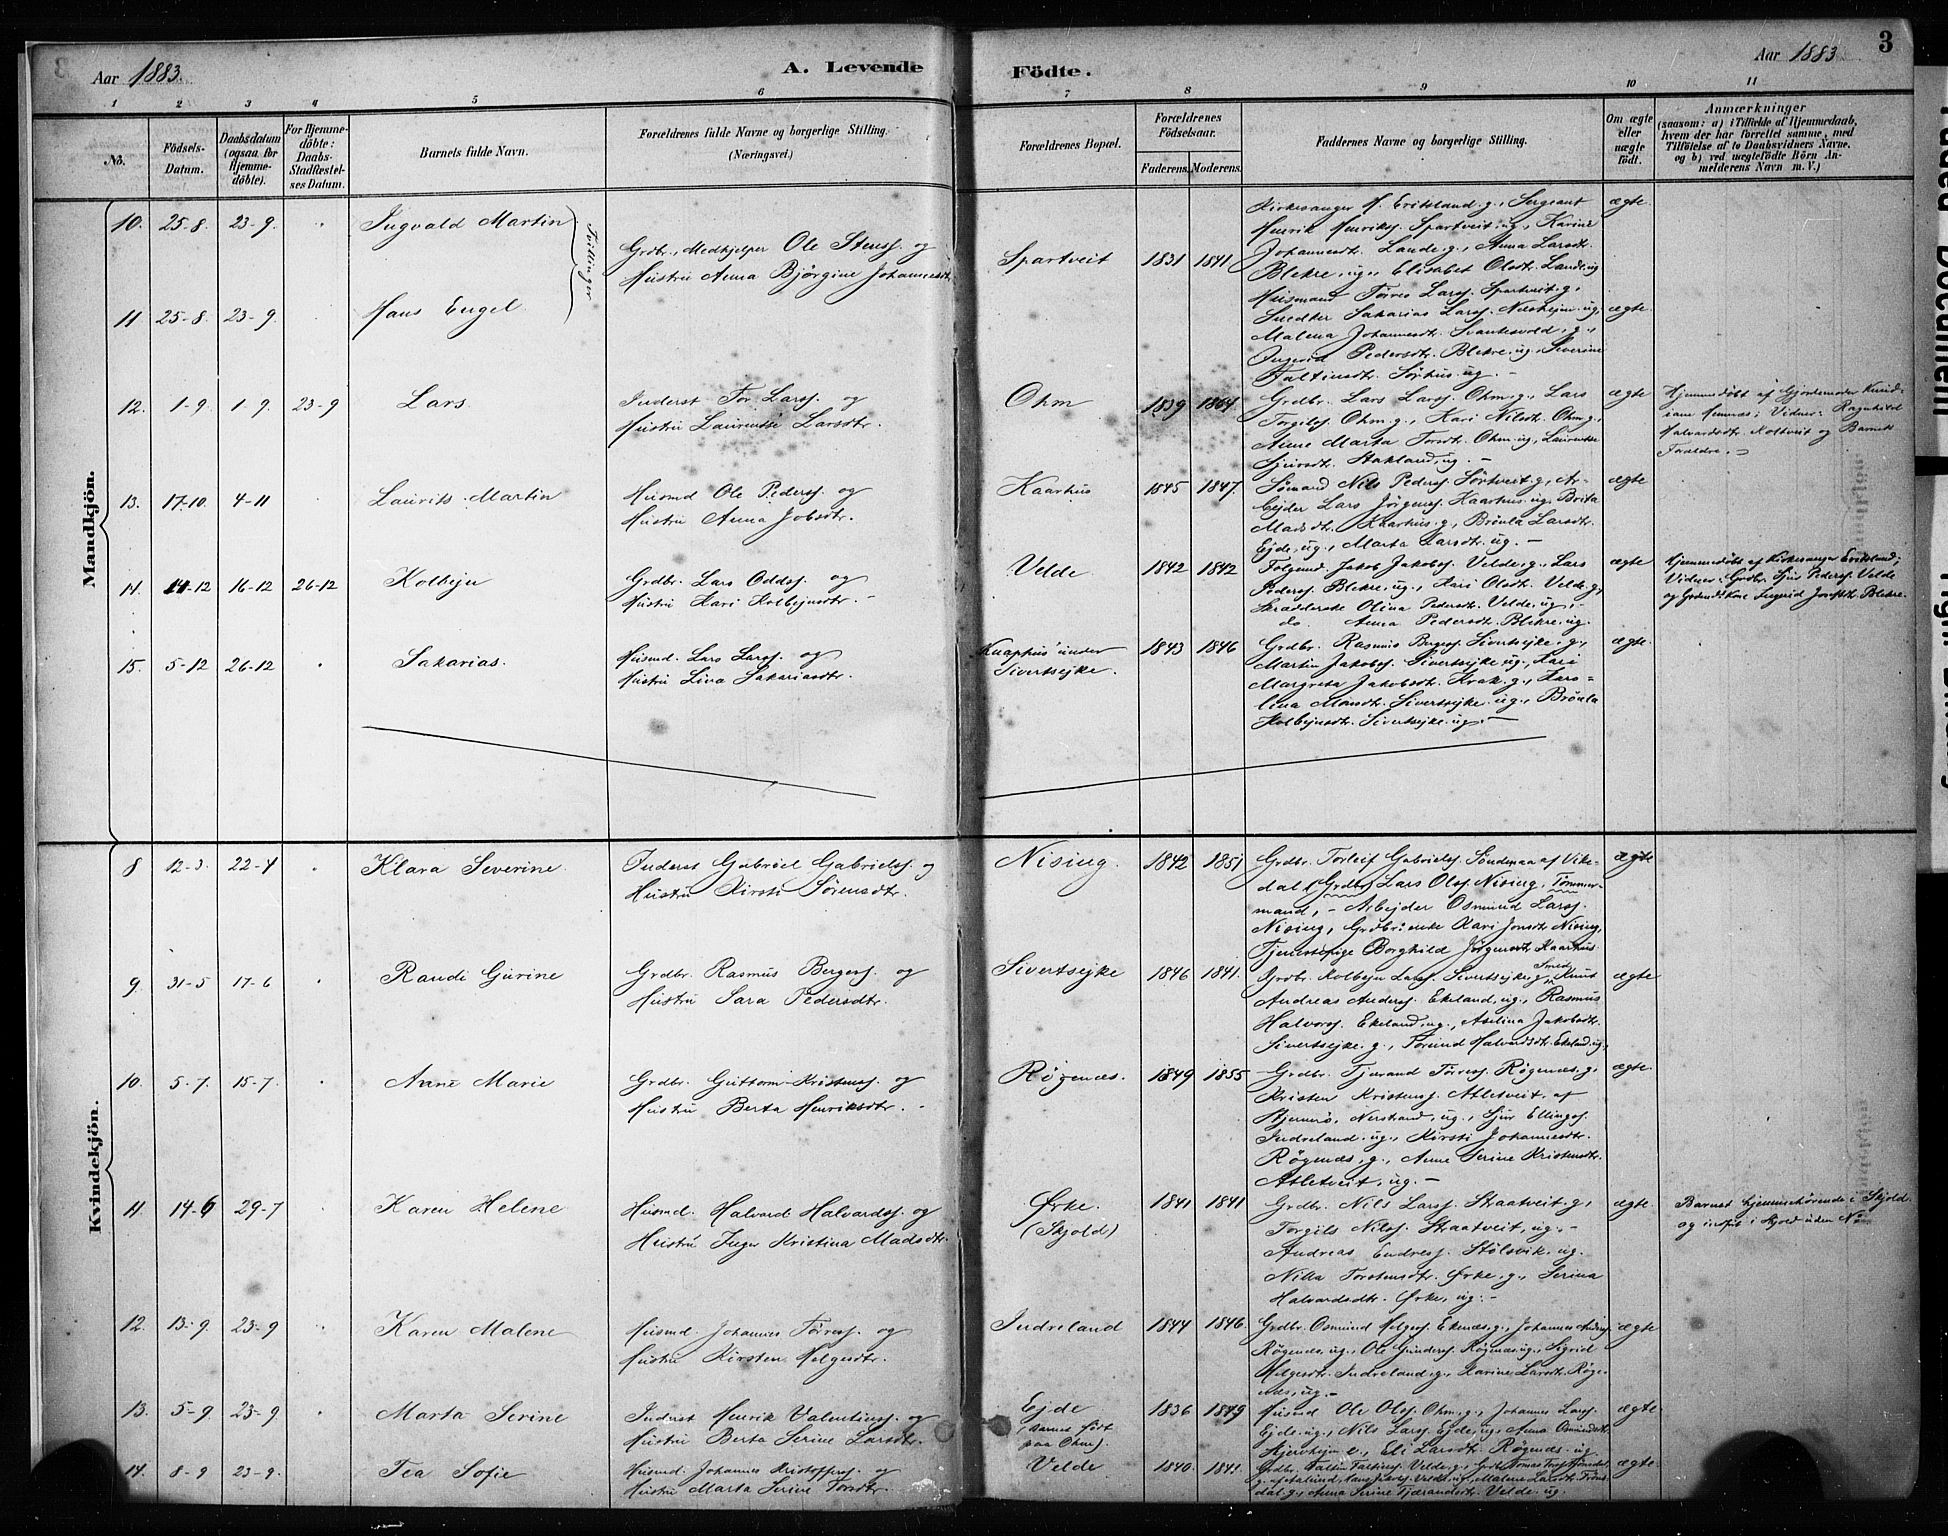 Aar 1883.
A. Levende
Födte.
Aar 1883
3
1 2 3 4 5 6 7 8 9 10 11
No.
Födsels-
Datum.
Daabsdatum
(ogsaa for
Hjemme-
döbte).
For Hjemme-
döbte:
Daabs-
Stadfæstel-
ses Datum.
Barnets fulde Navn.
Forældrenes fulde Navne og borgerlige Stilling.
(Næringsvei.)
Forældrenes Bopæl.
Forældrenes
Födselsaar.
Faderens. Moderens.
Faddernes Navne og borgerlige Stilling.
Om ægte
eller
uægte
födt.
Anmærkninger
(saasom: a) i Tilfælde af Hjemmedaab,
hvem der har forrettet samme, med
Tilföielse af to Daabsvidners Navne,
og b) ved uægtefödte Börn An-
melderens Navn m. V.)
Mandkjön.
10. 25-8. 23-9. Ingvald Martin
Tvillinger
Grdbr., Medhjelper Ole Stenss. og
Hustru Anna Björgine Johannesdtr.
Spartveit 1831 1841
Kirkesanger M. Eritsland. g., Sergeant
Henrik Henrikss. Spartveit. ug., Karine
Johannesdt. Lande. g., Anna Larsdt.
Blekre, ug., Elisabet Olsdt. Lande. ug
ægte
11 25-8. 23-9. Hans Engel
Husmand Törres Larss. Spartveit. g.,
Snedker Sakarias Larss. ug,
Malena Johannesdt. Svankevold. g.,
Ingerid Pedersdt. Blekre. ug., Severine
Faltinsdt. Sørhus. ug. -
ægte.
12. 1-9. 1-9. 23-9 Lars
Inderst Tor Larss. og
Hustru Laurentse Larsdtr.
Ohm 1839 1864
Grdbr. Lars Larss. Ohm. g., Lars
Torgilss. Ohm. g., Kari Nilsdt. Ohm. g.,
Anne Marta Torsdt. Ohm. ug., Laurentse
Sjursdt. Stakland, ug. -
ægte
Hjemmedöbt af Gjordemoder
Vidner: Ragnhild
Halvardsdt. og Barnets
Forældre. -
13. 17-10. 4-11 Laurits Martin
Husmd Ole Pederss. og
Hustru Anna Jobsdtr.
Kaarhus 1845 1847.
Sömand Nils Pederss. Sörtveit. g., Ar-
bejder Lars Jörgenss. Kaarhus. ug., Brita
Madsdt. Kaarhus. g., Bröula Larsdt.
Ejde, ug., Marta Larsdt. ug. -
ægte
14. 14-12 16-12 26-12 Kolbejn
Grdbr. Lars Oddss. og
Hustru Kari Kolbejnsdtr. -
Velde 1842 1842
Folgemd. Jakob Jakobss. Velde, g., Lars
Pederss. Blekre, ug., Kari Olsdt. Velde. g,
Skrædderske Olina Pedersdt. Velde, ug, -
do. Anna Pedersdt. Blekre. ug.
ægte
Hjemmedöbt af Kirkesanger Eritsland;
Vidner: Grdbr. Sjur Pederss. Velde
og Ingrid Blekre.
15. 5-12 26-12 Sakarias.
Husmd. Lars Larss. og
Hustru Lina Sakariasdtr.
Knaphus under
Sivertsejke. 1843 1846
Grdbr. Rasmus Bergess. Sivertsejke. g.,
Martin Jakobss. Sivertsejke ug., Kari
Margreta Jakobsdt. Krak. g., Karo-
lina Sivertsejke. ug., Bröula
Kolbejnsdt. Sivertsejke. ug. -
ægte.
Kvindekjön.
8 12-3. 22-4 Klara Severine.
Inderst Gabriel Gabrielss. og
Hustru Kirsti Sörensdt.
Nising. 1842 1851
Grdbr. Torleif Gabrielss. Söndenaa af Vike-
dal, Grdbr. Lars Olss. Nising, Tömmer-
mand, - Arbejder Osmund Larss.
Nising, Grdbr.enke Kari Jonsdt. Nising,
Tjenestepige Borghild Jörgensdt. Kaarhus
ægte
9. 31-5 17-6 Randi Gurine
Grdbr. Rasmus Bergess. og
Hustru Sara Pedersdtr.
Sivertsejke 1846 1841.
Grdbr. Kolbejn Larss. Sivertsejke, g., Smed Knut
Andreas Anderss. Ekeland, ug., Rasmus
Halvorss. Ekeland, ug., Aselina Jakobsdt.
Sivertsejke. g., Torund Halvardsdt. Ekeland. ug.,
ægte
10. 5-7. 15-7. Anne Marie
Grdbr. Guttorm Kristenss. og
Hustru Berta Henriksdtr. -
Røgenæs. 1849 1855
Grdbr. Tjærand Törress. Røgenæs. g,
Kristen Kristenss. Atletveit, af
Nerstrand, ug., Sjur Ellingss.
Indreland. ug., Kirsti Johannesdt.
Røgenæs, g., Anne Serine Kristensdt.
Atletveit, ug. -
ægte.
11. 14-6 29-7 Karen Helene
Husmd. Halvard Halvardss. og
Hustru Inger Kristina Madsdtr.
Ørke.
(Skjold) 1841 1841
Grdbr. Nils Larss. Straatveit. g.,
Torgils Nilss. Straatveit, ug. -
Andreas Endress. Stölsvik. ug.
Nilla Torstensdt. Ørke. g., Serina
Halvardsdt. Ørke, ug. -
ægte.
Barnet hjemmehörende i Skjold
og indf. i Skjold uden No
12. 13-9. 23-9 Karen Malene
Husmd. Johannes Törress. og
Hustru Kirsten Helgesdtr.
Indreland 1844 1846.
Grdbr. Osmund Helgess. Ekenæs, g., Johannes Anderss.
Røgenæs, ug., Ole Gunderss. Røgenæs. ug., Sigrid
Helgesdt. Indreland, g., Karine Larsdt. Røge-
næs, ug. -
ægte
13. 5-9 23-9 Marta Serine
Inderst Henrik Valentinss. og
Hustru Berta Serine Larsdtr.
Ejde
(barnet født
paa Ohm). 1836 1849
Husmd Ole Olss. Ohm. g., Johannes Larss.
Ejde. ug., Nils Larss. Ejde, ug., Anna Osmundsdt.
Skjerhejm e., Eli Larsdt. Røgenæs. ug.
ægte
14. 8-9 23-9. Tea Sofie
Husmd. Johannes Kristofferss. og
Hustru Marta Serine Torsdtr.
Velde 1840. 1841.
Grdbr. Faltin Faltinss. Velde, g., Grdbr. Tomas
Velde, ug., Malene Larsdt.
g., Anna Serine Tjærandsdt. Velde. ug.
ægte